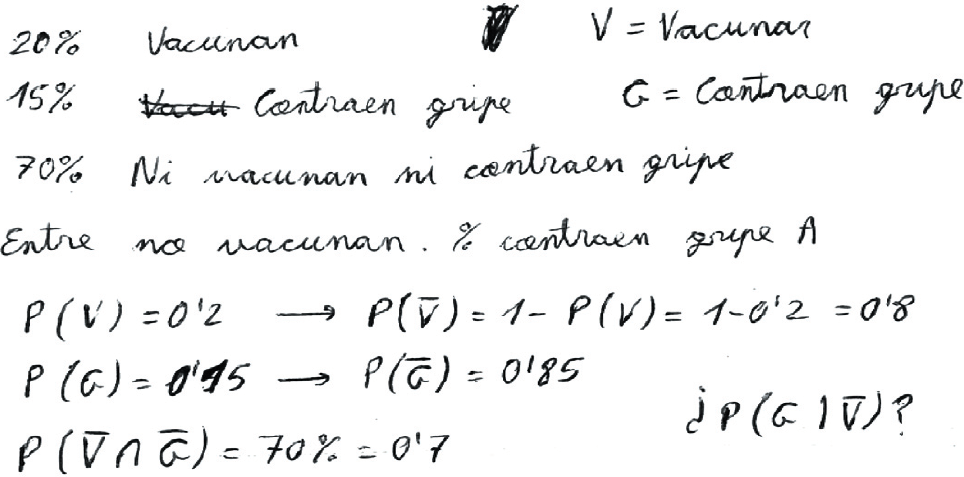 20% Vacunan V = Vacunar
15% Contraen gripe G = Contraen gripe
70% Ni vacunan ni contraen gripe
Entre no vacunan. % contraen gripe A
P(V) = 0'2 → P(V̅) = 1 - P(V) = 1 - 0'2 = 0'8
P(G) = 0'15 → P(G̅) = 0'85
¿P(G|V̅)?
P(V̅ ∩ G̅) = 70% = 0'7